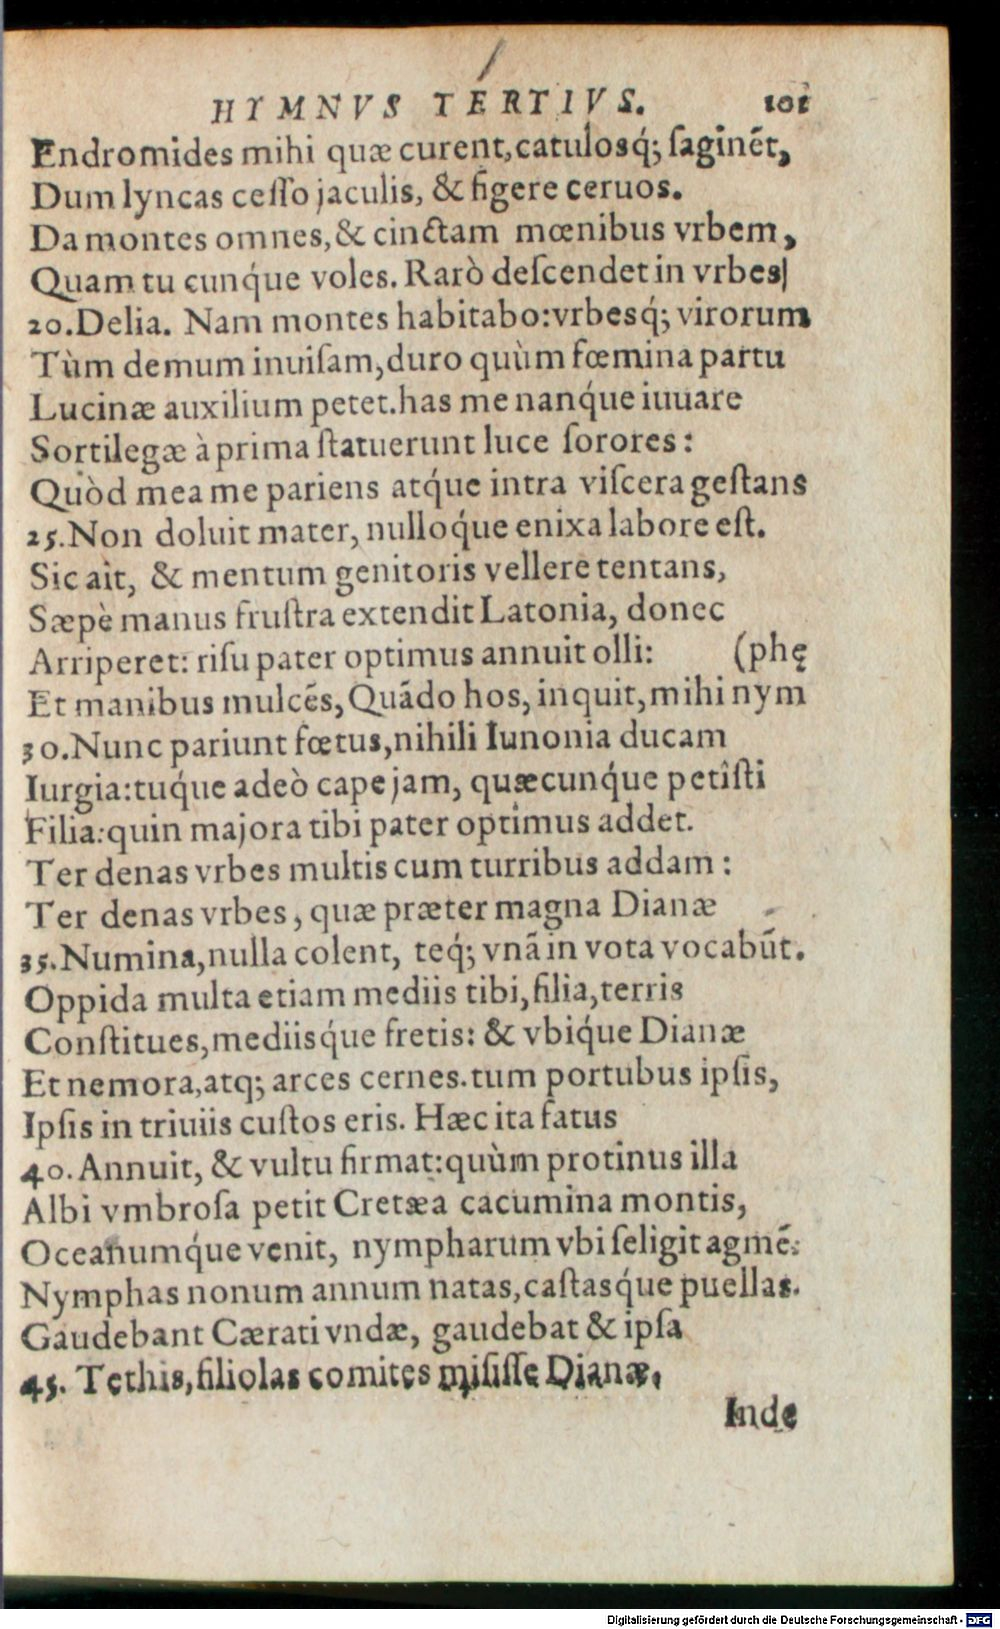 HYMNVS TERTIVS. 101
Endromides mihi quæ curent, catulosq́; ſaginẽt,
Dum lyncas ceſſo jaculis, & figere ceruos.
Da montes omnes, & cinctam mœnibus vrbem,
Quam tu cunq́ue voles. Rarò deſcendet in vrbes
20. Delia. Nam montes habitabo: vrbesq́; virorum
Tùm demum inuiſam, duro quùm fœmina partu
Lucinæ auxilium petet. has me nanq́ue iuuare
Sortilegæ à prima ſtatuerunt luce ſorores:
Quòd mea me pariens atq́ue intra viſcera geſtans
25. Non doluit mater, nulloq́ue enixa labore eſt.
Sic ait, & mentum genitoris vellere tentans,
Sæpè manus fruſtra extendit Latonia, donec
Arriperet: riſu pater optimus annuit olli: (phę
Et manibus mulcẽs, Quãdo hos, inquit, mihi nym
30. Nunc pariunt fœtus, nihili Iunonia ducam
Iurgia: tuq́ue adeò cape jam, quæcunq́ue petîſti
Filia: quin majora tibi pater optimus addet.
Ter denas vrbes multis cum turribus addam:
Ter denas vrbes, quæ præter magna Dianæ
35. Numina, nulla colent, teq́; vnã in vota vocabũt.
Oppida multa etiam mediis tibi, filia, terris
Conſtitues, mediisq́ue fretis: & vbiq́ue Dianæ
Et nemora, atq; arces cernes. tum portubus ipſis,
Ipſis in triuiis cuſtos eris. Hæc ita fatus
40. Annuit, & vultu firmat: quùm protinus illa
Albi vmbroſa petit Cretæa cacumina montis,
Oceanumq́ue venit, nympharum vbi ſeligit agmẽ:
Nymphas nonum annum natas, caſtasq́ue puellas.
Gaudebant Cærati vndæ, gaudebat & ipſa
45. Tethis, filiolas comites miſiſſe Dianæ,
Inde
Digitalisierung gefördert durch die Deutsche Forschungsgemeinschaft - DFG